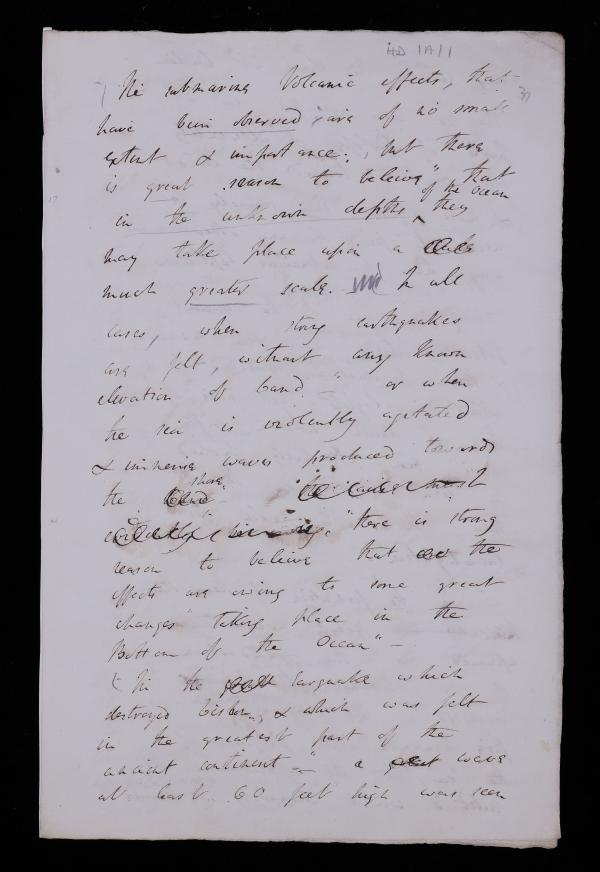 HD 1A/1
The submarine Volcanic effects, that
have been observed are of no small
extent & importance., but there
is great reason to believe" that
of the Ocean
in the unknown depths they
may take place upon a
much greater scale. In all
cases, when strong earthquakes
are felt, without any known
elevation of land" - or when
the sea is violently agitated
& immense waves produced towards
shore
the land the most
certainly "there is strong
reason to believe that the
effects are owing to some great
changes" taking place in the
Bottom of the Ocean" -
( In the great Earquake which
destroyed Lisbon, & which was felt
in the greatest part of the
ancient continent - " a great wave
at least 60 feet high was seen